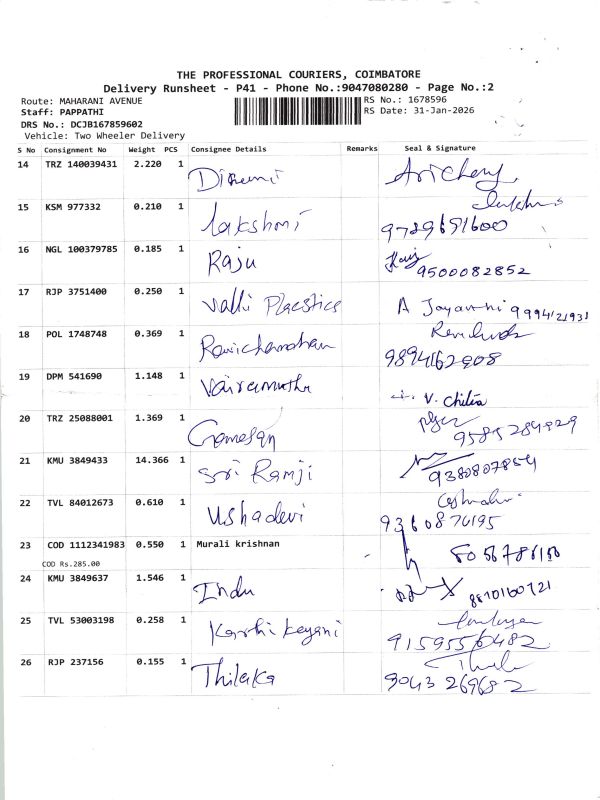 THE PROFESSIONAL COURIERS, COIMBATORE
Delivery Runsheet - P41 - Phone No.:9047080280 - Page No.:2
Route: MAHARANI AVENUE
RS No.: 1678596
Staff: PAPPATHI
RS Date: 31-Jan-2026
DRS No.: DCJB167859602
Vehicle: Two Wheeler Delivery
S No Consignment No Weight PCS Consignee Details Remarks Seal & Signature
14 TRZ 140039431 2.220 1
15 KSM 977332 0.210 1 lakshmi 9789691600
16 NGL 100379785 0.185 1 Raju 9500082852
17 RJP 3751400 0.250 1 Valli Plaestics A Jayanthi 9994121931
18 POL 1748748 0.369 1 Ravichandran 9894162908
19 DPM 541690 1.148 1 Vairamuthu V. Chitra
20 TRZ 25088001 1.369 1 Ganesan 9585284929
21 KMU 3849433 14.366 1 Sri Ramji 9380807854
22 TVL 84012673 0.610 1 Ushadevi 9360876195
23 COD 1112341983 0.550 1 Murali krishnan
COD Rs.285.00
24 KMU 3849637 1.546 1 Indu
25 TVL 53003198 0.258 1 Karthikeyani 9159556482
26 RJP 237156 0.155 1 Thilaka 9043269682